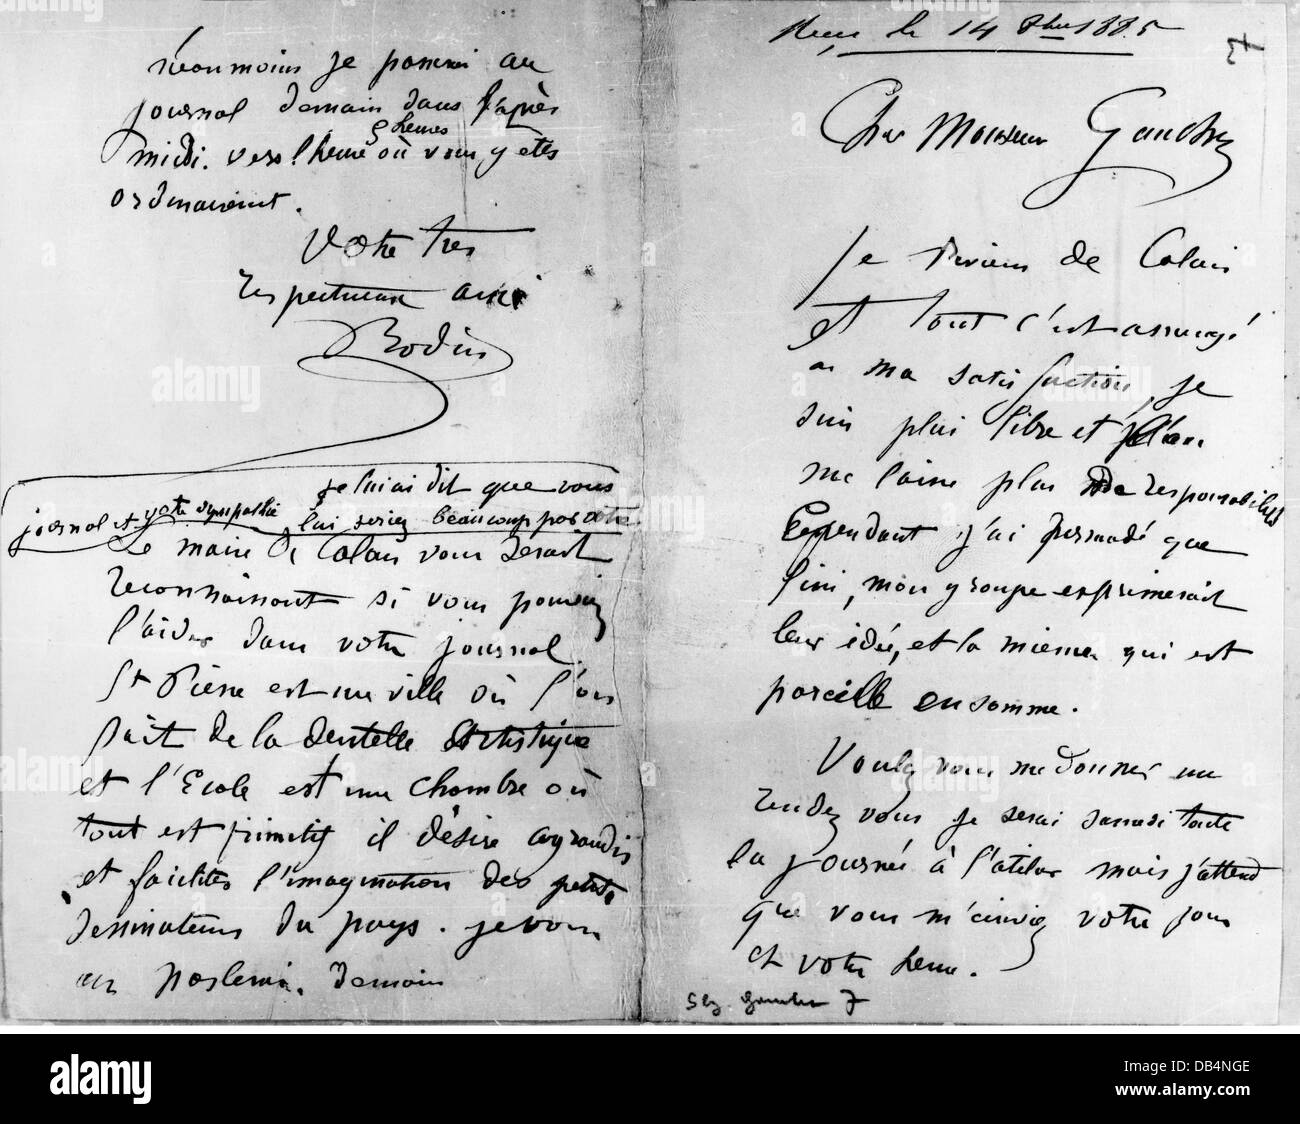 le 14 8bre 1885
Cher Monsieur Gauchez
Je reviens de Calais
et tout c'est arrangé
a ma satisfaction, je
suis plus libre et
me laisse plus de responsabilités
Cependant j'ai persuadé que
fini, mon groupe exprimerait
leur idée, et la mienne qui est
pareille en somme.
Voulez vous me donner un
rendez vous je serai samedi toute
la journée à l'atelier mais j'attend
que vous m'ecriviez votre jour
et votre heure.
7
néanmoins je passerai au
journal demain dans l'après
5 heures
midi. vers l'heure où vous y etes
ordinairement.
Votre tres
respectueux ami
Rodin
je lui ai dit que vous
journal et votre sympathie lui seriez beaucoup par votre
Le maire de Calais vous serait
reconnaissant si vous pouviez
l'aider dans votre journal
St Pierre est une ville où l'on
fait de la dentelle artistique
et l'Ecole est une chambre où
tout est primitif il désire agrandir
et faciliter l'imagination des petits
dessinateurs du pays. je vous
en parlerai. Demain
alamy
DB4NGE
www.alamy.com